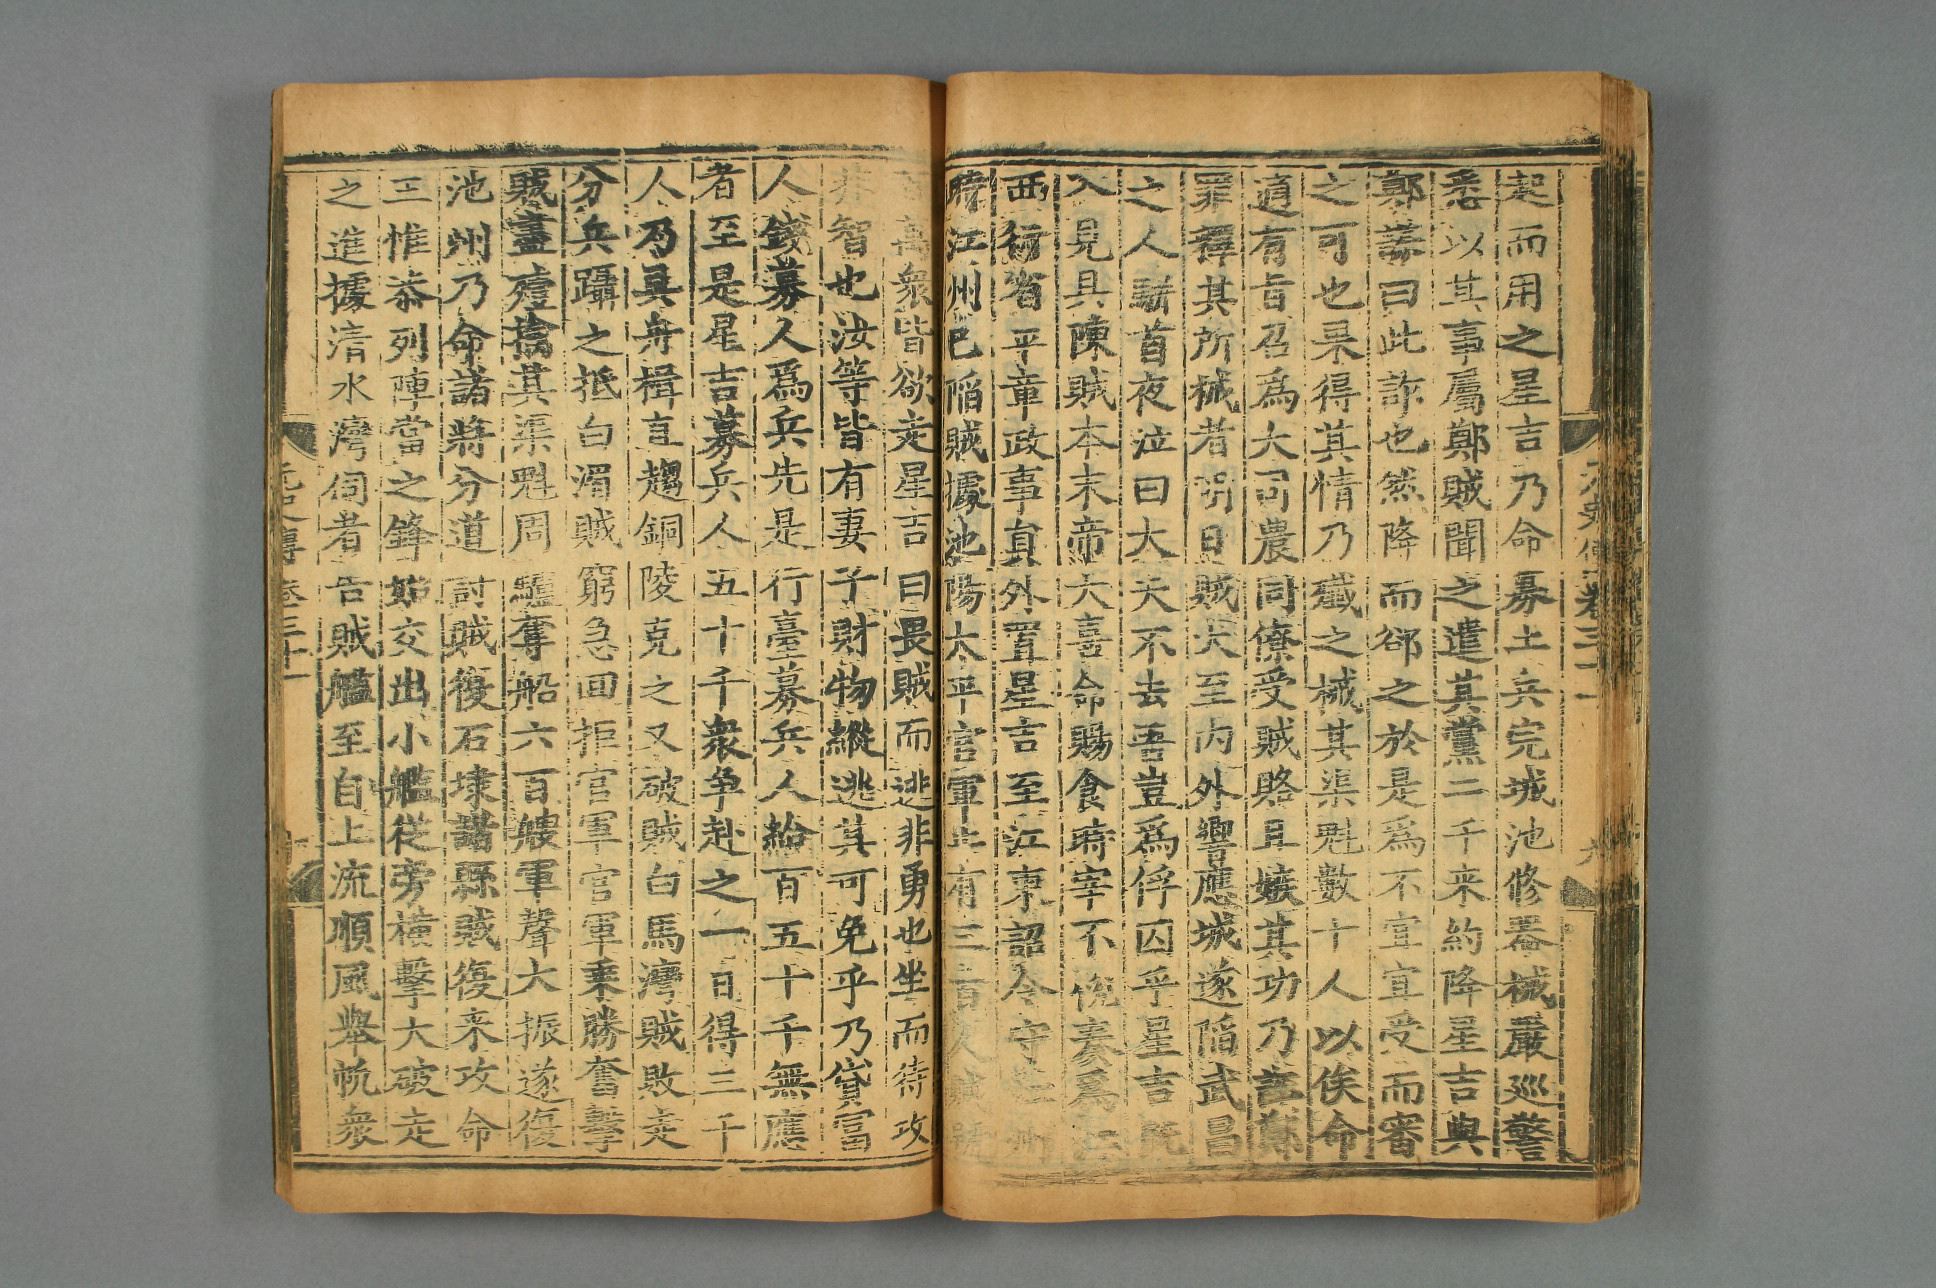 起而用之星吉乃命募土兵完城池修器械嚴巡警
悉以其事屬鄭賊聞之遣其黨二千來約降星吉與
鄭謀曰此詐也然降而郤之於是爲不宜宜受而審
之可也果得其情乃殱之械其渠魁數十人以俟命
適有旨召爲大司農同僚受賊賂且嫉其功乃誣鄭
罪釋其所械者明日賊大至内外響應城遂陷武昌
之人駢首夜泣曰大夫不去吾豈爲俘囚乎星吉旣
入見具陳賊本末帝大喜命賜食時宰不悅奏爲江
西行省平章政事員外置星吉至江東詔令守江州
時江州已陷賊據池陽太平官軍止有三百人賊號
百萬衆皆欲走星吉曰畏賊而逃非勇也坐而待攻
非智也汝等皆有妻子財物縱逃其可免乎乃貸富
人錢募人爲兵先是行臺募兵人給百五十千無應
者至是星吉募兵人五十千衆争赴之一日得三千
人乃具舟楫直趨銅陵克之又破賊白馬灣賊敗走
分兵躡之抵白湄賊窮急回拒官軍官軍乘勝奮擊
賊盡殪擒其渠魁周驢奪船六百艘軍聲大振遂復
池州乃命諸將分道討賊復石埭諸縣賊復來攻命
王惟恭列陣當之鋒始交出小艦從旁橫擊大破走
之進據清水灣伺者告賊艦至自上流順風舉帆衆
元史傳卷三十一